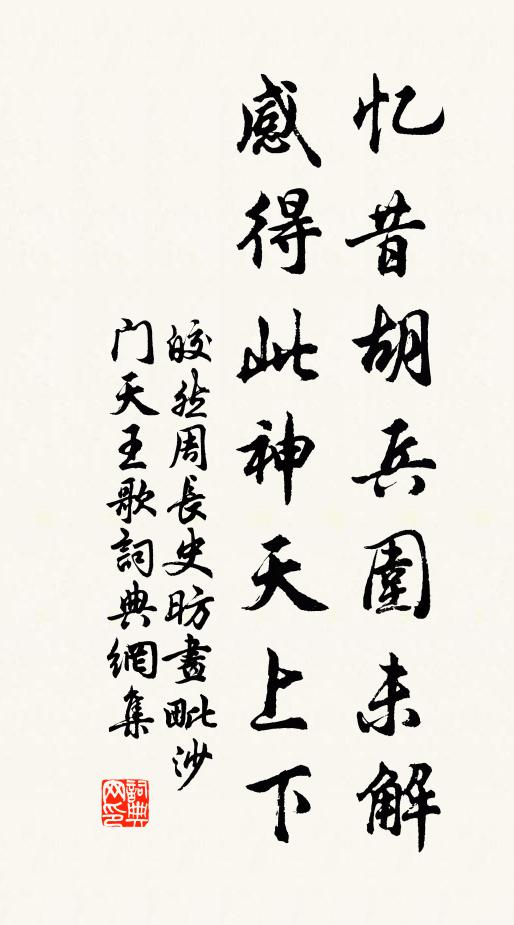 忆昔胡兵圍未解
感得此神天上下
皎然周長史昉畫毗沙
门天王歌詞典網集
詞典
网印